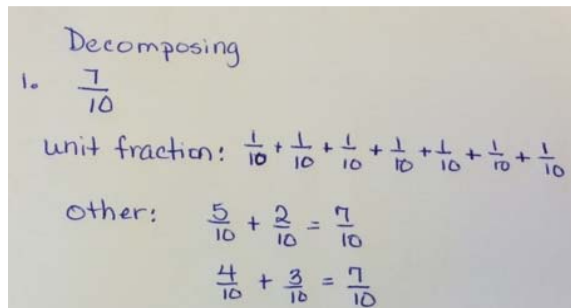 Decomposing
1. 7/10
unit fraction: 1/10 + 1/10 + 1/10 + 1/10 + 1/10 + 1/10 + 1/10
other: 5/10 + 2/10 = 7/10
4/10 + 3/10 = 7/10